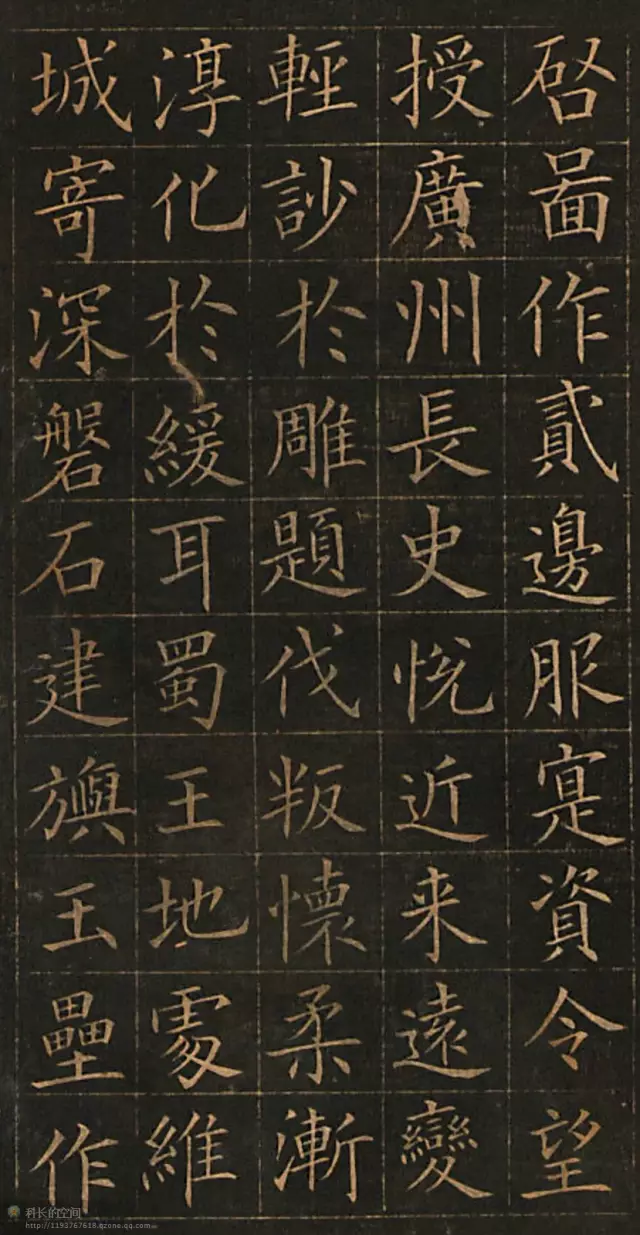 启啚作貳邊服寔資令望
授廣州長史悅近来遠變
輕訬於雕題伐叛懷柔漸
淳化於緩耳蜀王地處維
城寄深磐石建旟玉壘作
科长的空间
http://1192767618.qzone.qq.com